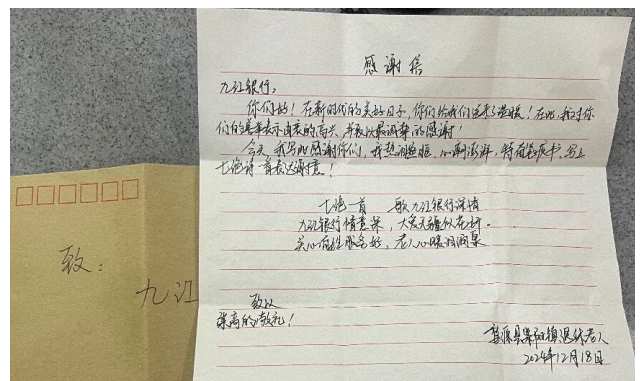 感谢信
九江银行：
你们好！在新时代的美好日子，你们给我们送来了温暖！在此，我对你
们的善举表示由衷的高兴，并致以最诚挚的感谢！
今天，我写此感谢你们，我热泪盈眶，心潮澎湃，特留笔疾书，写上
七绝诗一首表达谢意！
七绝一首 敬九江银行深情
九江银行情意深，大爱无疆似花开。
关心百姓服务好，老人心暖泪润
致以
崇高的敬礼！
退休老人
2024年12月18日
致：
九江